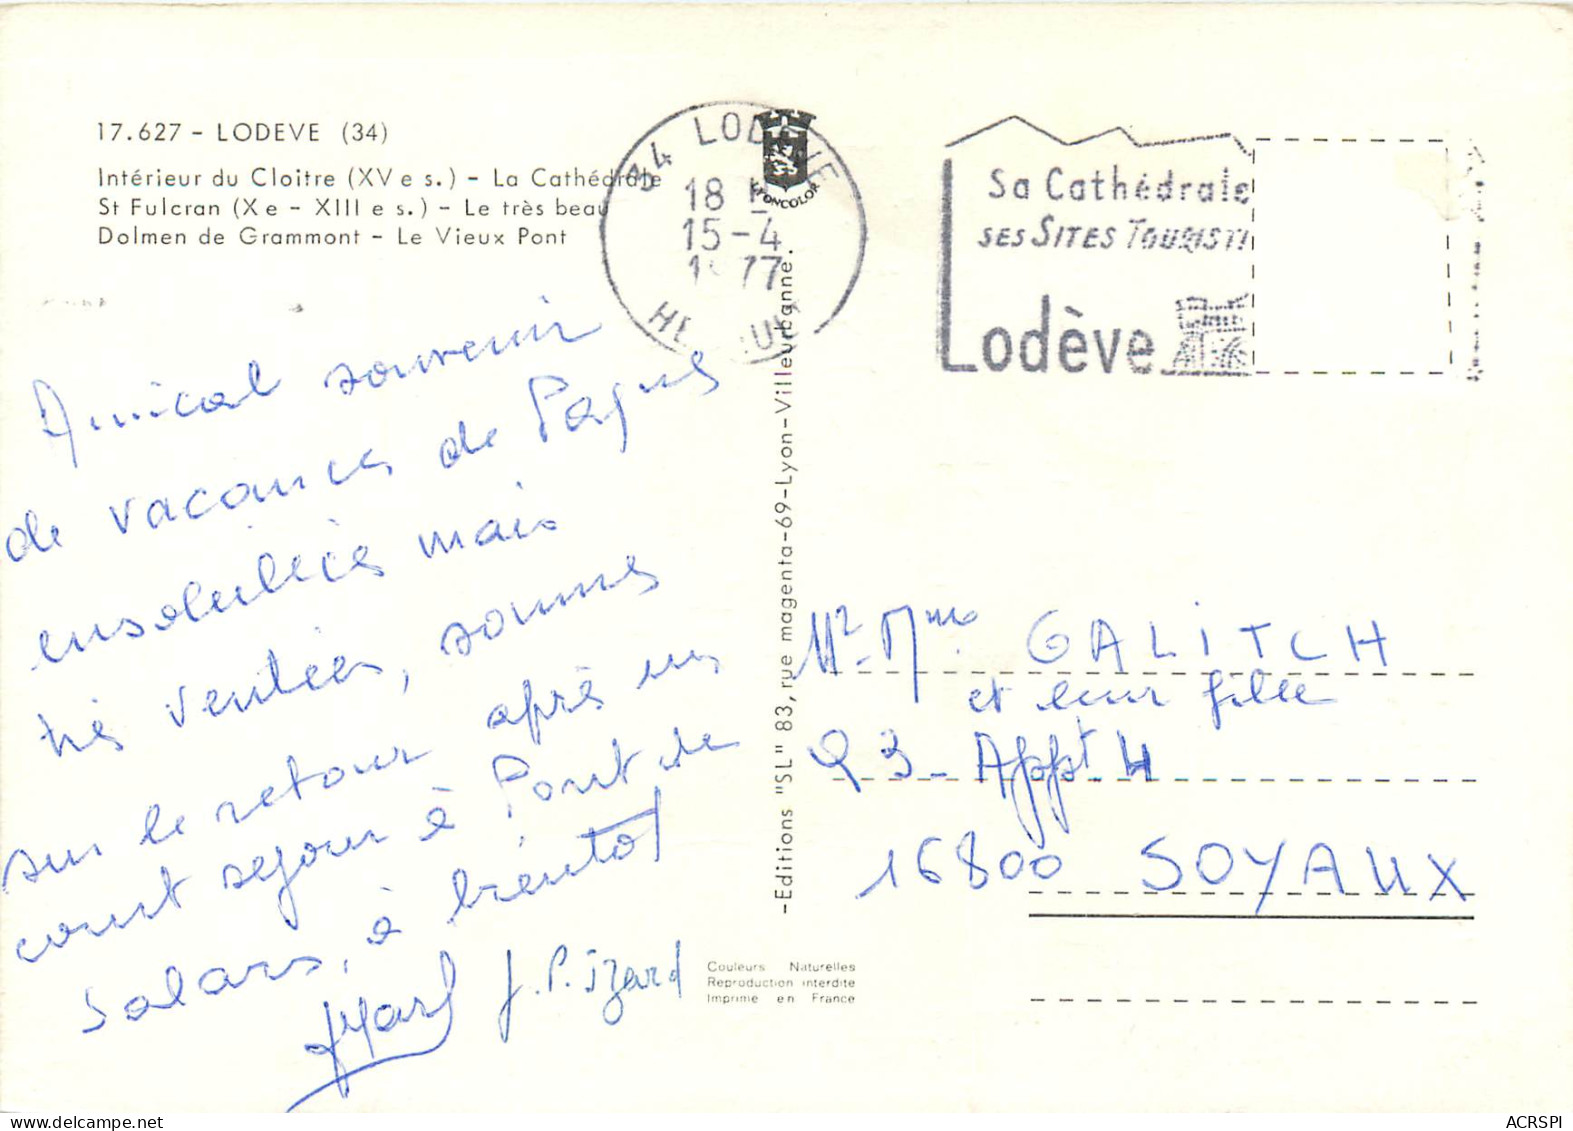 17.627 - LODEVE (34)
Intérieur du Cloitre (XV e s.) - La Cathédrale
St Fulcran (X e - XIII e s.) - Le très beau
Dolmen de Grammont - Le Vieux Pont
Amical souvenir
de vacances de Paques
ensoleillées mais
très ventées, sommes
sur le retour après un
court sejour à Pont de
Salars, à bientôt
J.P. Izard
34 LODEVE
18 H
15-4
1977
HERAULT
IONCOLOR
Sa Cathédrale
SES SITES TOURISTI
Lodève
-Editions "SL" 83, rue magenta-69-Lyon-Villeurbanne.
Mr. Mme GALITCH
et leur fille
Appt. 4
16800 SOYAUX
Couleurs Naturelles
Reproduction interdite
Imprimé en France
ACRSPI